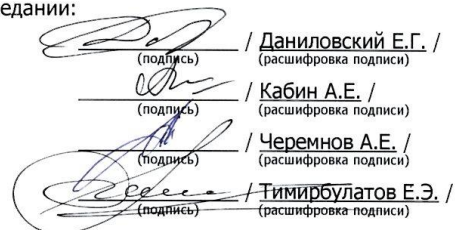 едании:
/ Даниловский Е.Г. /
(подпись) (расшифровка подписи)
/ Кабин А.Е. /
(подпись) (расшифровка подписи)
/ Черемнов А.Е. /
(подпись) (расшифровка подписи)
/ Тимирбулатов Е.Э. /
(подпись) (расшифровка подписи)